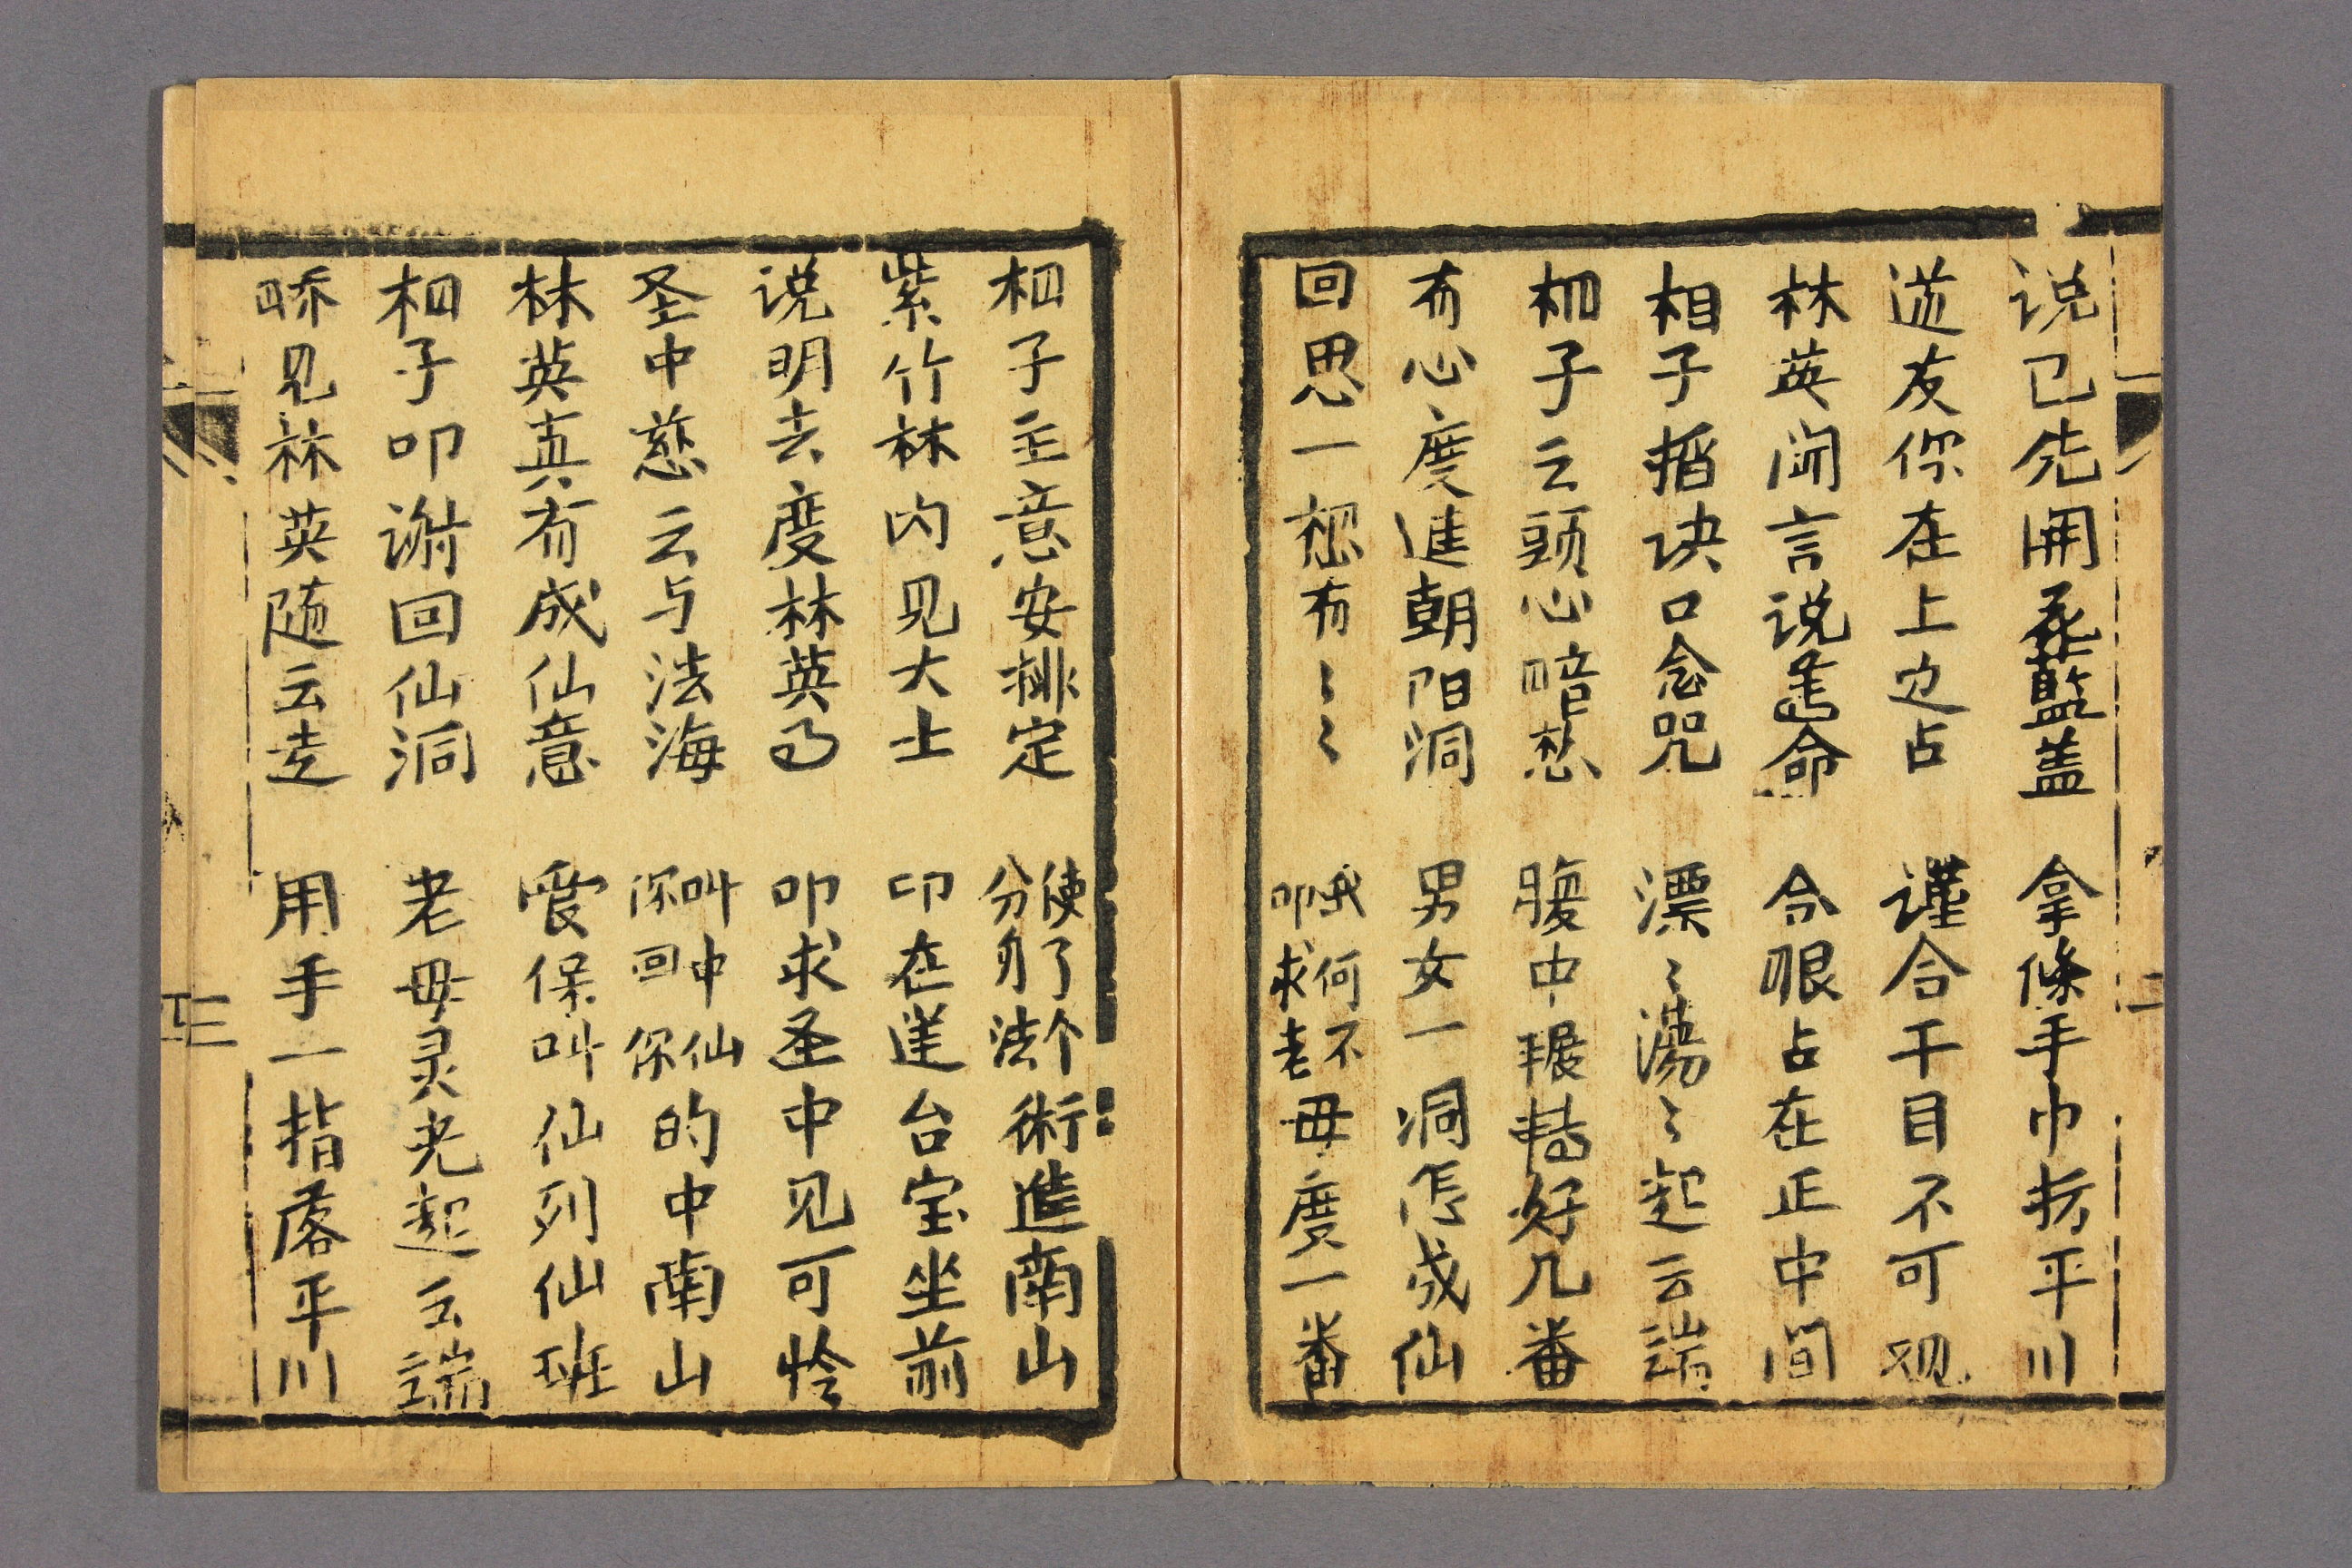 说已先用喬藍盖 拿條手巾扵平川
道友你在上边占 谨合干目不可視
林英闻言说遵命 合眼占在正中間
相子搯诀口念咒 漂〻漡〻起云端
相子云頭心暗想 腹中輾轉好几番
有心度進朝阳洞 男女一洞怎成仙
回思一想有〻〻 我何不叩求老毋度一番
相子主意安排定 使了个分身法術進南山
紫竹林内见大士 叩在莲台宝坐前
说明去度林英的 叩求圣中见可怜
圣中慈云与法海 叫中仙你回你的中南山
林英真有成仙意 爱保叫仙列仙班
相子叩谢回仙洞 老毋灵光起云端
晽见林英随云走 用手一指落平川